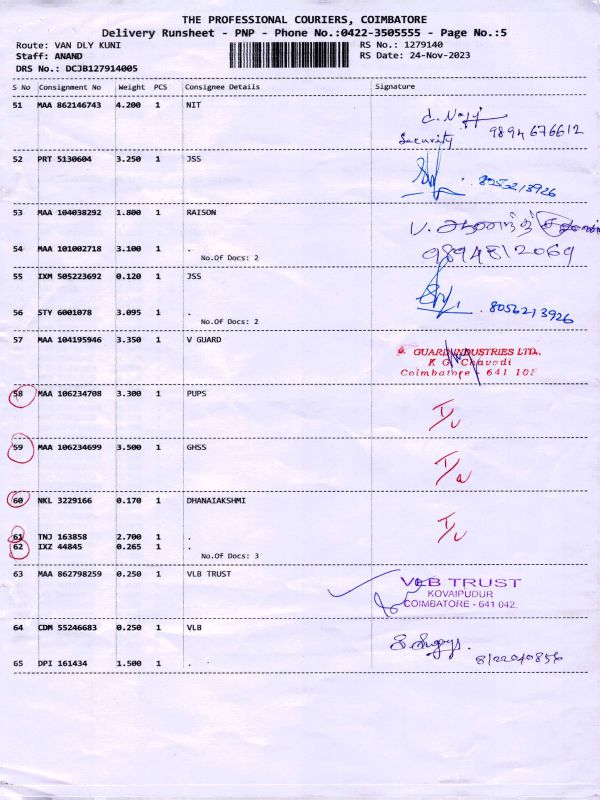 THE PROFESSIONAL COURIERS, COIMBATORE
Delivery Runsheet - PNP - Phone No.:0422-3505555 - Page No.:5
Route: VAN DLY KUNI RS No.: 1279140
Staff: ANAND RS Date: 24-Nov-2023
DRS No.: DCJB127914005
S No Consignment No Weight PCS Consignee Details Signature
51 MAA 862146743 4.200 1 NIT
Security 9894676612
52 PRT 5130604 3.250 1 JSS
53 MAA 104038292 1.800 1 RAISON
54 MAA 101002718 3.100 1 .
9894812069
No.Of Docs: 2
55 IXM 505223692 0.120 1 JSS
56 STY 6001078 3.095 1 . 8056213926
No.Of Docs: 2
57 MAA 104195946 3.350 1 V GUARD
GUARD INDUSTRIES LTD.,
K G Chavadi
Coimbatore - 641 105
58 MAA 106234708 3.300 1 PUPS
59 MAA 106234699 3.500 1 GHSS
60 NKL 3229166 0.170 1 DHANAIAKSHMI
61 TNJ 163858 2.700 1 .
62 IXZ 44845 0.265 1 .
No.Of Docs: 3
63 MAA 862798259 0.250 1 VLB TRUST
VLB TRUST
KOVAIPUDUR
COIMBATORE - 641 042.
64 CDM 55246683 0.250 1 VLB
65 DPI 161434 1.500 1 . .